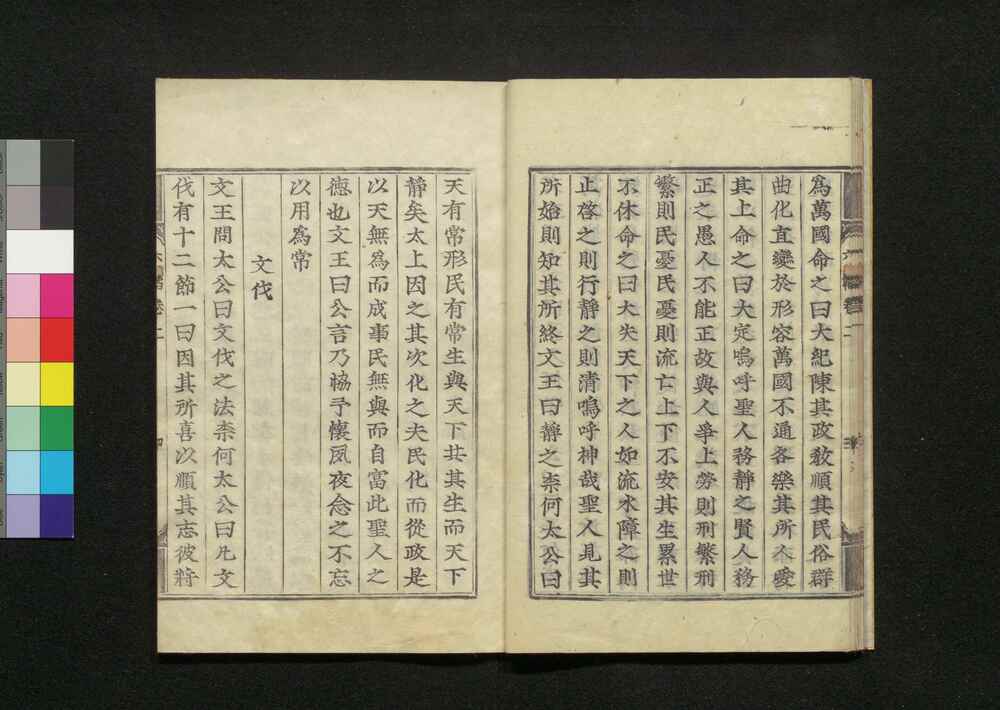 爲萬國命之曰大紀陳其政敎順其民俗群
曲化直變於形容萬國不通各樂其所人愛
其上命之曰大定嗚呼聖人務静之賢人務
正之愚人不能正故與人爭上勞則刑繁刑
繁則民憂民憂則流亡上下不安其生累世
不休命之曰大失天下之人如流水障之則
止啓之則行静之則清嗚呼神哉聖人見其
所始則知其所終文王曰静之柰何太公曰
天有常形民有常生與天下共其生而天下
静矣太上因之其次化之夫民化而從政是
以天無爲而成事民無與而自富此聖人之
德也文王曰公言乃協予懷夙夜念之不忘
以用爲常
文伐
文王問太公曰文伐之法柰何太公曰凡文
伐有十二節一曰因其所喜以順其志彼將